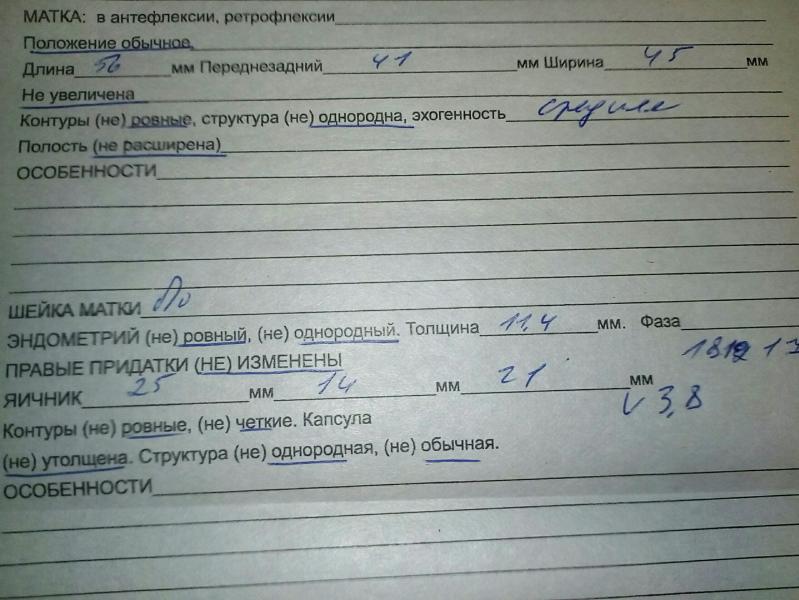 МАТКА: в антефлексии, ретрофлексии
Положение обычное,
Длина 56 мм Переднезадний 41 мм Ширина 45 мм
Не увеличена
Контуры (не) ровные, структура (не) однородна, эхогенность средняя
Полость (не расширена)
ОСОБЕННОСТИ
ШЕЙКА МАТКИ
ЭНДОМЕТРИЙ (не) ровный, (не) однородный. Толщина 11,4 мм. Фаза
ПРАВЫЕ ПРИДАТКИ (НЕ) ИЗМЕНЕНЫ
ЯИЧНИК 25 мм 14 мм 21 мм
V 3,8
Контуры (не) ровные, (не) четкие. Капсула
(не) утолщена. Структура (не) однородная, (не) обычная.
ОСОБЕННОСТИ